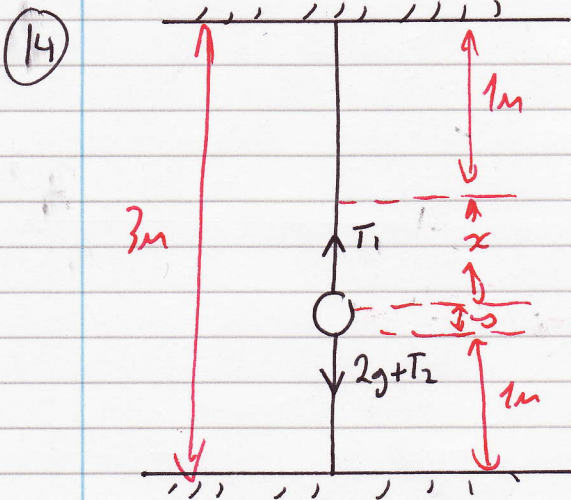 14
1m
3m
T₁
x
y
2g+T₂
1m